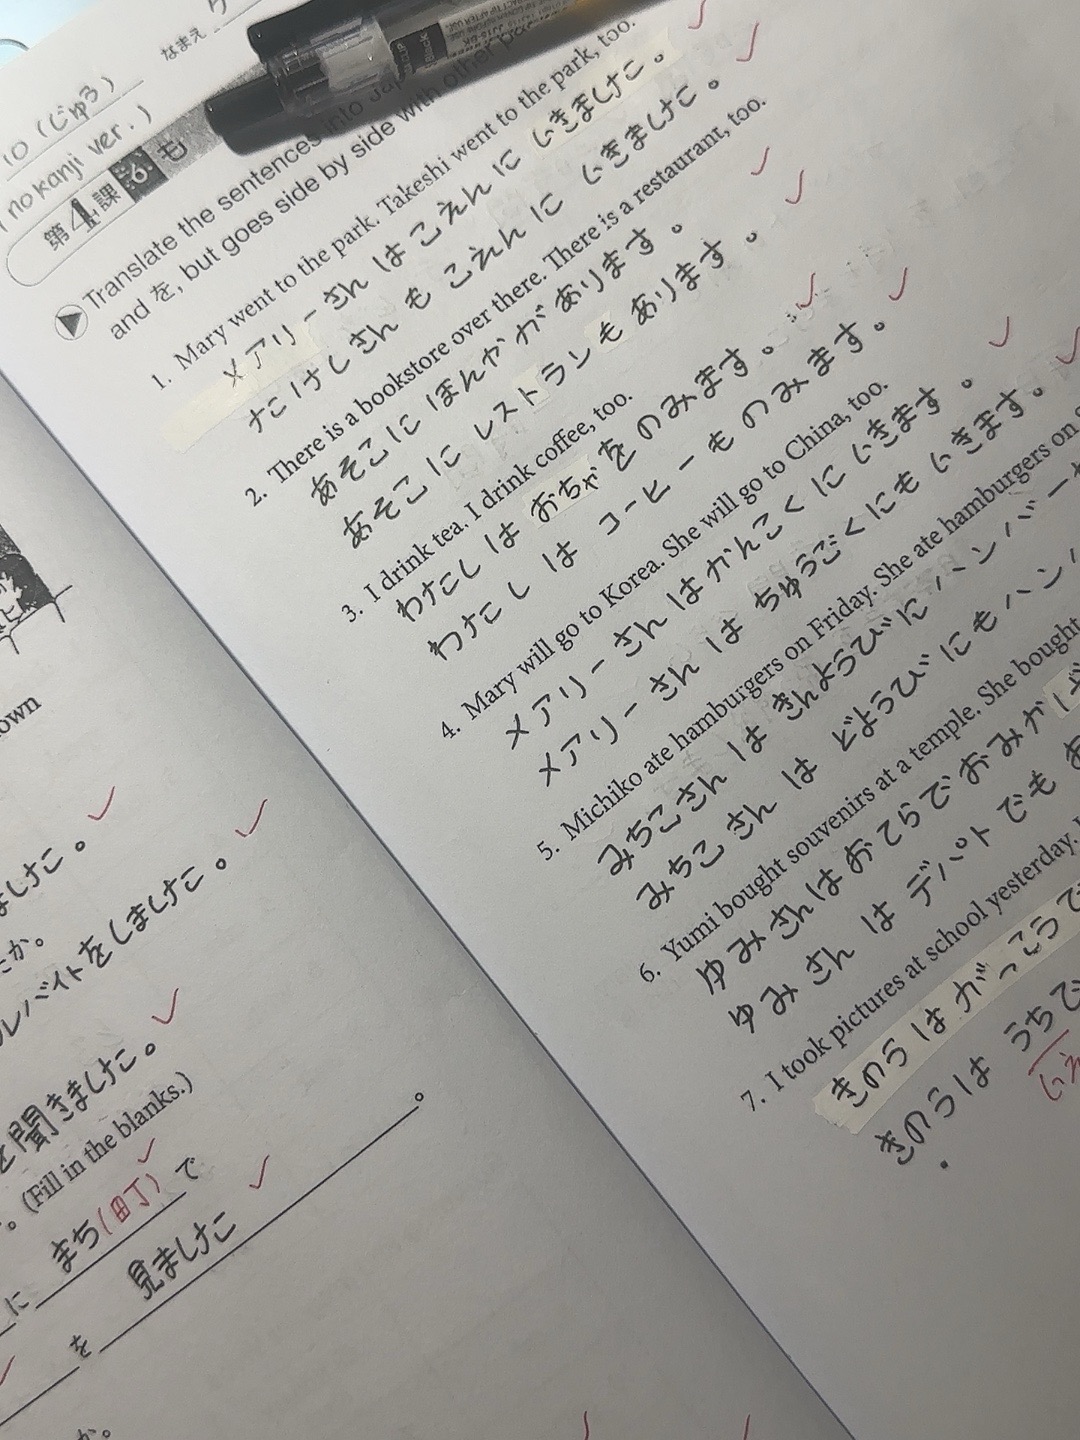 10 (じゅう)
なまえ
(no kanji ver.)
第4課 6 も
Translate the sentences into Japanese
and を, but goes side by side with other
1. Mary went to the park. Takeshi went to the park, too.
メアリーさん はこえんに いきました。
たけしさん も こえん に いきました。
2. There is a bookstore over there. There is a restaurant, too.
あそこに ほんやが あります。
あそこ に レストランも あります。
3. I drink tea. I drink coffee, too.
わたし は おちゃ を のみます。
わたし は コーヒー も のみ ます。
4. Mary will go to Korea. She will go to China, too.
メアリーさん はかんこくに いきます。
メアリーさん は ちゅうごくにも いきます。
5. Michiko ate hamburgers on Friday. She ate hamburgers on
みちこさん は きんようびに ハンバー
みちこ さん は どようび にもハン
6. Yumi bought souvenirs at a temple. She bought
ゆみさんはおてらで おみやげ
ゆみ さん は デパート でも
7. I took pictures at school yesterday.
きのう は がっこうで
きのうは うちで
いえ
own
ました。
たか。
ルバイトをしました。
を聞きました。
。(Fill in the blanks.)
に まち(町) で
を 見ました。
か。